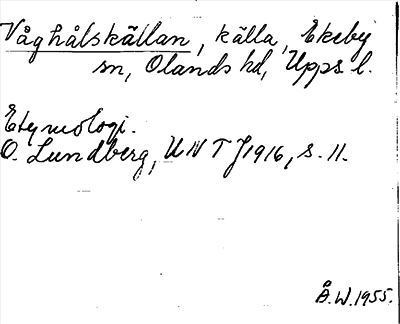 Våghålskällan, källa, Ekeby
sn, Olands hd, Upps l.
Etymologi.
O. Lundberg, UNT J 1916, s. 11.
Å.W. 1955.